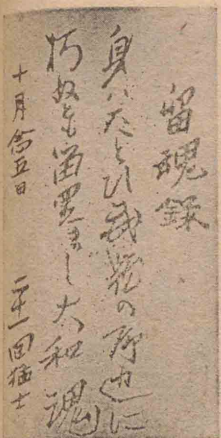 留魂録
身ハたとひ武蔵の野辺に
朽ぬとも留置まし大和魂
十月念五日 二十一回猛士